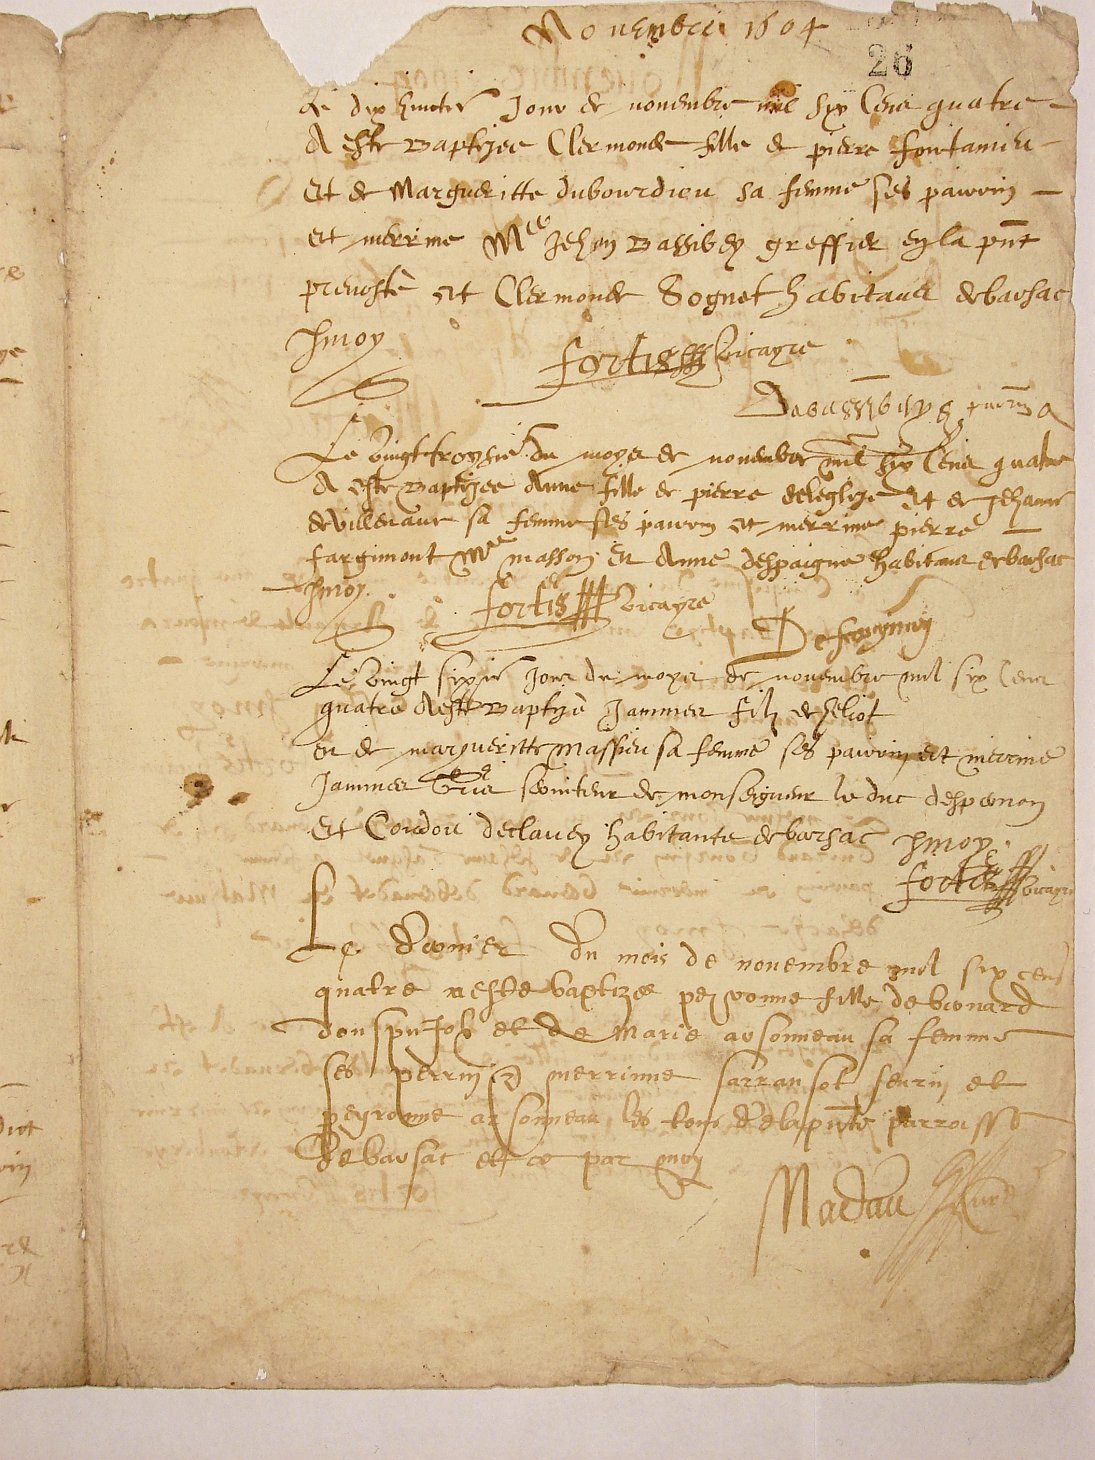 Novembre 1604
26
Le dix huictie Jour de novembre mil six Cens quatre
A este Baptisee Clermonde fille de pierre fontanieu
Et de Margueritte dubourdieu sa femme ses pairrin
et merrine Me Jehan Bassibey greffier en la pnt
prevosté et Clermonde Sognet habitans de barsac
p moy
fortis vicayre
Le vingt troysie du moys de novembre mil six Cens quatre
A este Baptisee Anne fille de pierre deleglise et de Jehanne
devillenave sa femme ses pairrin et merrine pierre
fargimont Me masson et Anne despaigne habitans de barsac
p moy
fortis vicayre
Le vingt sixie Jour du moys de novembre mil six Cens
quatre A este Baptise Jammes filz de heliot
et de margueritte Massieu sa femme ses pairrin et merrine
Jammes serviteur de monseigneur le duc despernon
Et declavey habitante de barsac p moy
fortis vicayre
Le dernier du mois de novembre mil six cens
quatre a este baptizee peyronne fille de bernard
et de Marie arsonneau sa femme
ses perrin et merrinne sarransot seurin et
peyronne arsonneau les tous de la pnte parroisse
de barsac et ce par moy
Madau curé